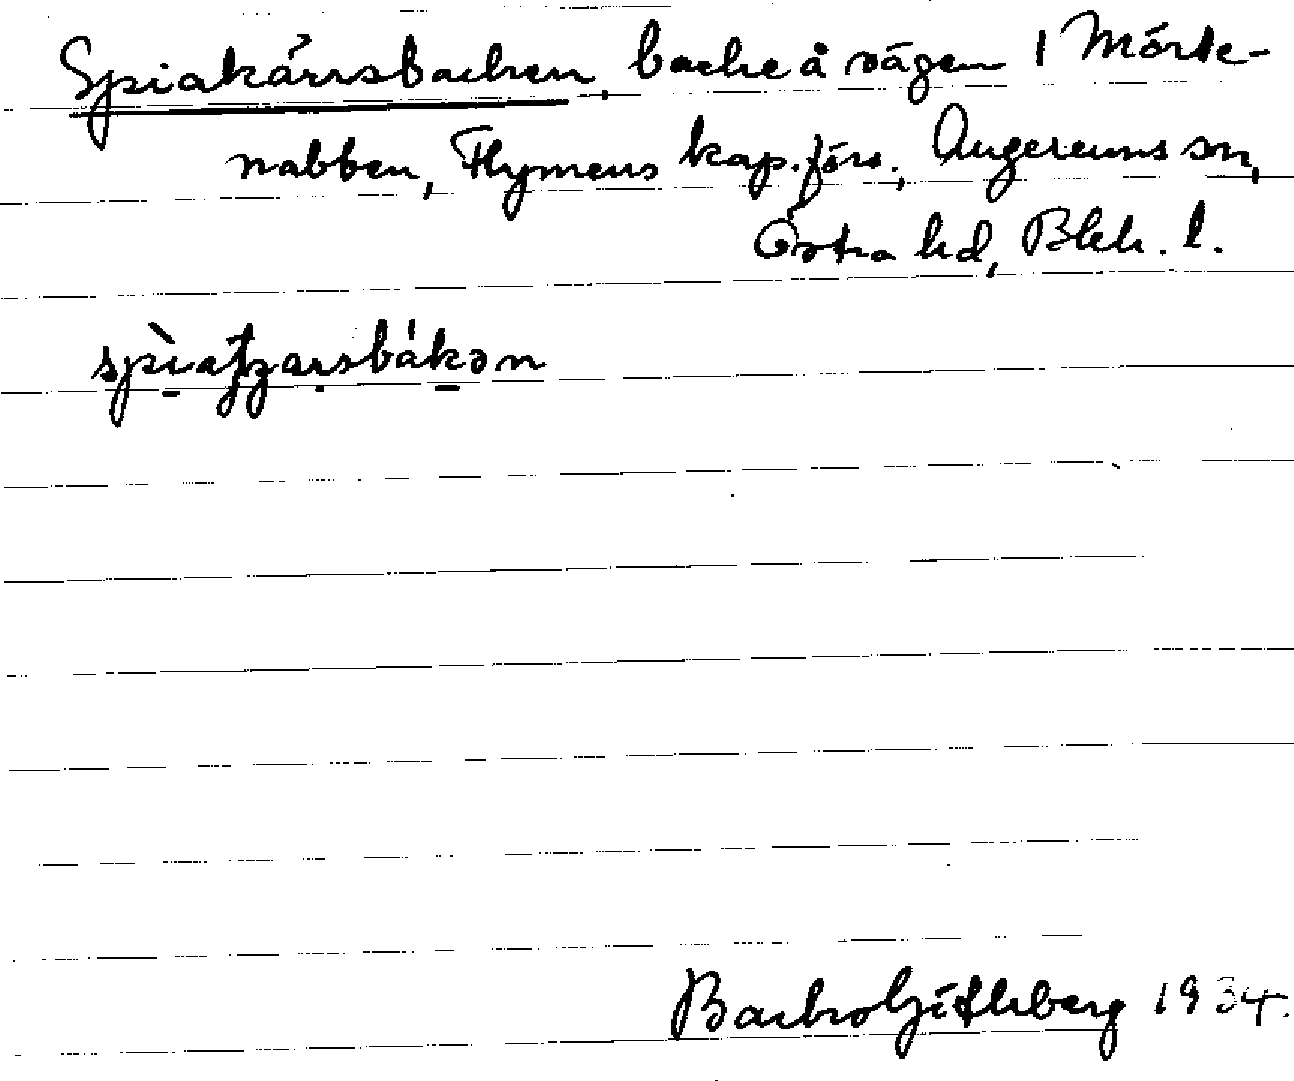 Spiakärrsbacken, backe å vägen i Mörte-
nabben, Flymens kap.förs., Augerums sn,
Östra hd, Blek. l.
spiat̠ȥarsbákən
1934.